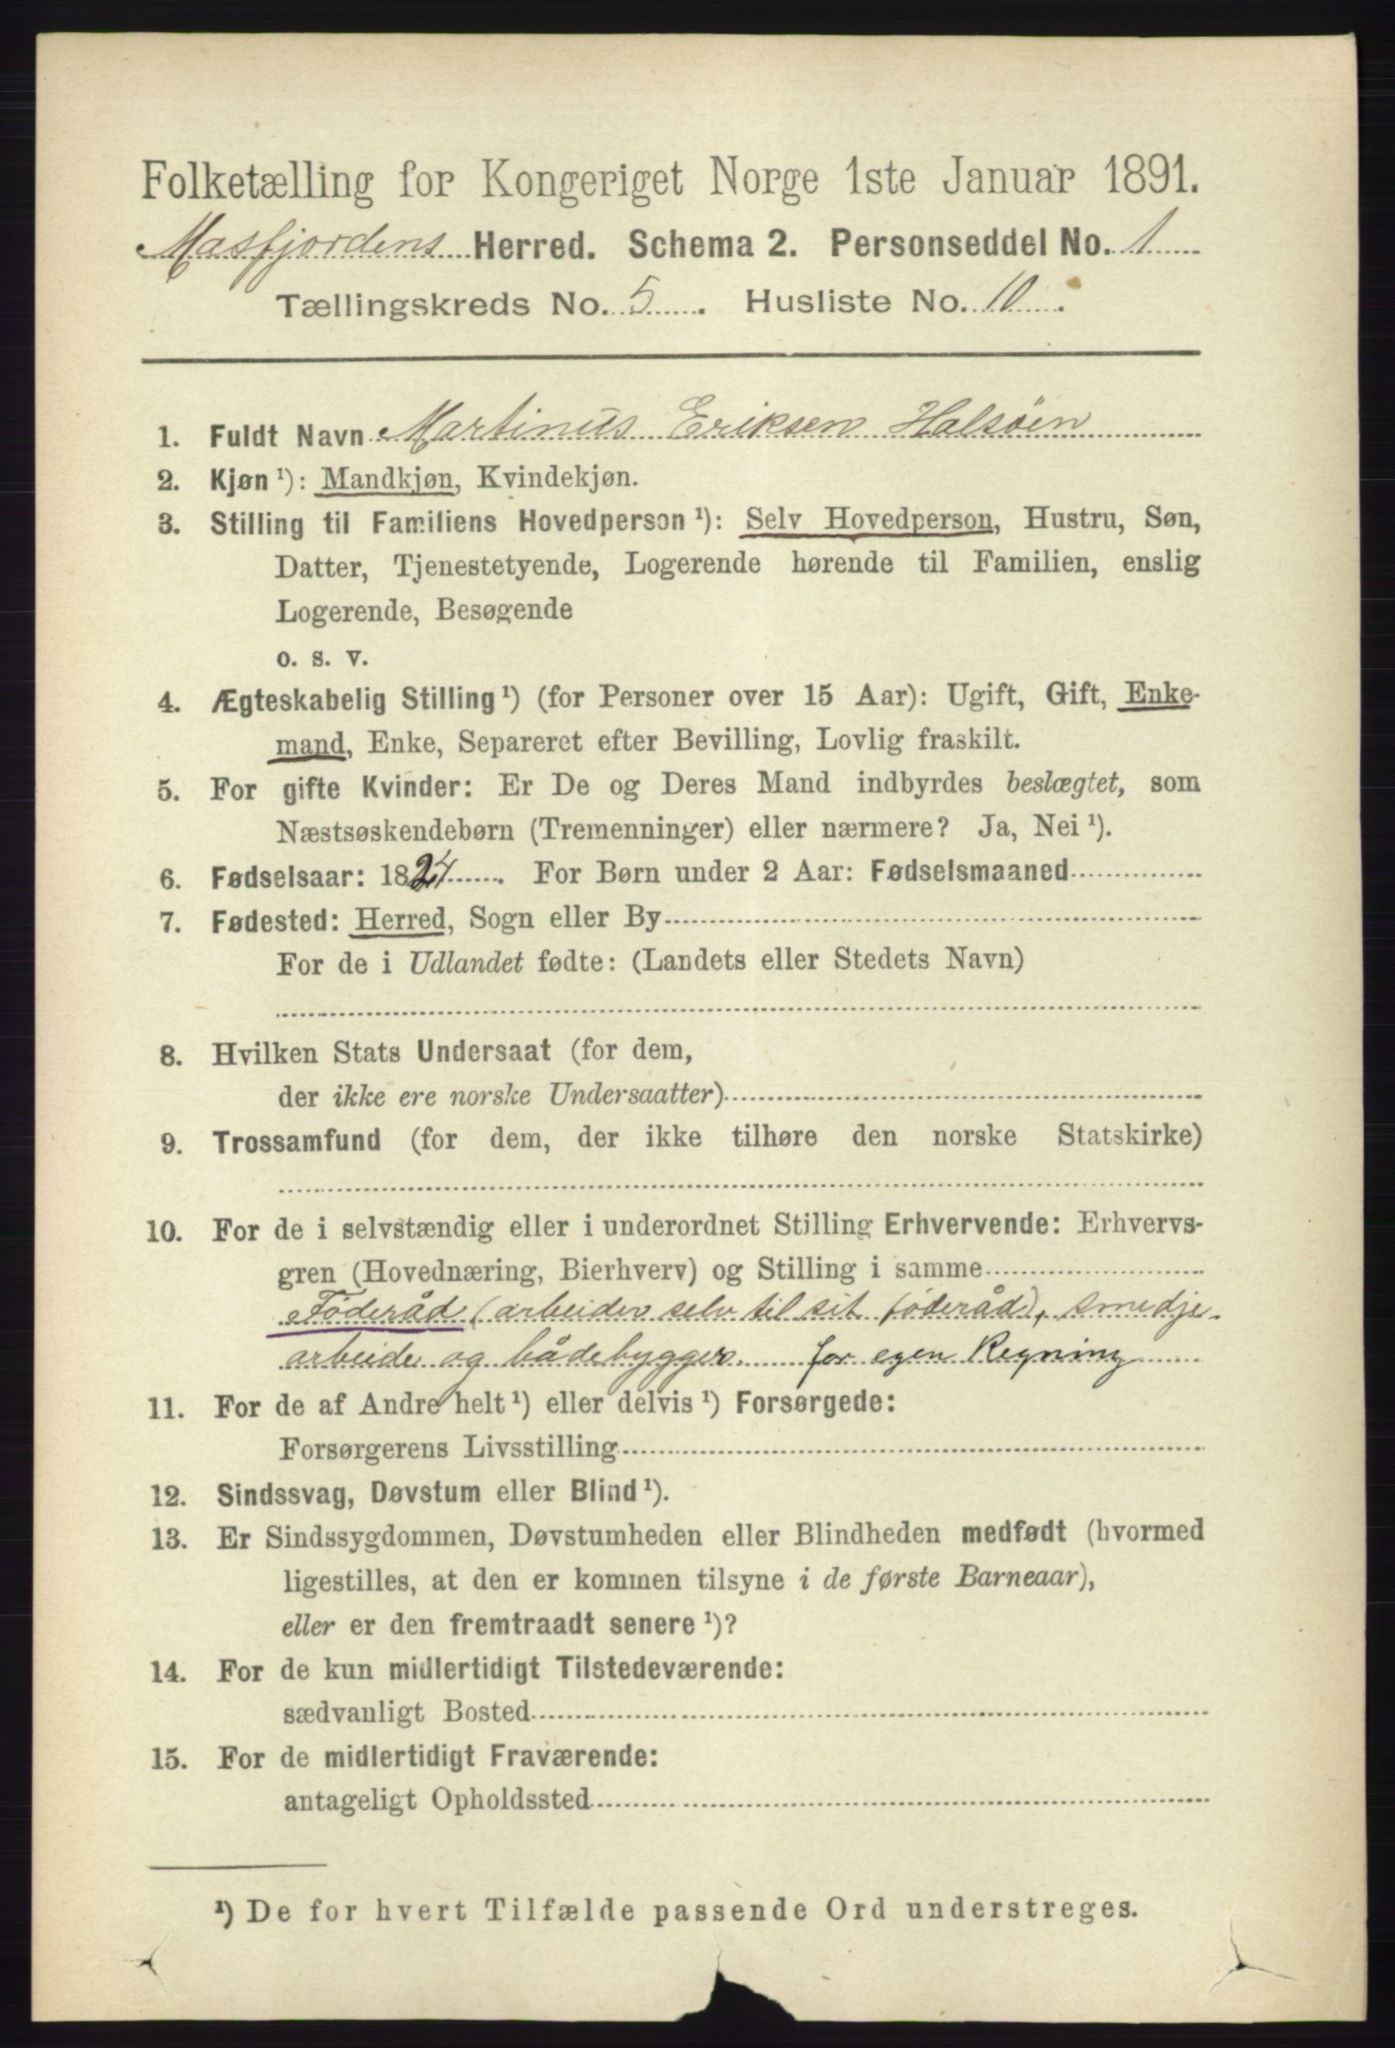 Folketælling for Kongeriget Norge 1ste Januar 1891.
Masfjordens Herred. Schema 2. Personseddel No. 1
Tællingskreds No. 5. Husliste No. 10.
1. Fuldt Navn Martinus Eriksen Halsøen
2. Kjøn ¹): Mandkjøn, Kvindekjøn.
3. Stilling til Familiens Hovedperson ¹): Selv Hovedperson, Hustru, Søn,
Datter, Tjenestetyende, Logerende hørende til Familien, enslig
Logerende, Besøgende
o. s. v.
4. Ægteskabelig Stilling ¹) (for Personer over 15 Aar): Ugift, Gift, Enke-
mand, Enke, Separeret efter Bevilling, Lovlig fraskilt.
5. For gifte Kvinder: Er De og Deres Mand indbyrdes beslægtet, som
Næstsøskendebørn (Tremenninger) eller nærmere? Ja, Nei ¹).
6. Fødselsaar: 1824. For Børn under 2 Aar: Fødselsmaaned
7. Fødested: Herred, Sogn eller By
For de i Udlandet fødte: (Landets eller Stedets Navn)
8. Hvilken Stats Undersaat (for dem,
der ikke ere norske Undersaatter)
9. Trossamfund (for dem, der ikke tilhøre den norske Statskirke)
10. For de i selvstændig eller i underordnet Stilling Erhvervende: Erhvervs-
gren (Hovednæring, Bierhverv) og Stilling i samme
Föderåd (arbeider selv til sit föderåd), smedje-
arbeide og bådebygger. for egen Regning
11. For de af Andre helt ¹) eller delvis ¹) Forsørgede:
Forsørgerens Livsstilling
12. Sindssvag, Døvstum eller Blind ¹).
13. Er Sindssygdommen, Døvstumheden eller Blindheden medfødt (hvormed
ligestilles, at den er kommen tilsyne i de første Barneaar),
eller er den fremtraadt senere ¹)?
14. For de kun midlertidigt Tilstedeværende:
sædvanligt Bosted
15. For de midlertidigt Fraværende:
antageligt Opholdssted
¹) De for hvert Tilfælde passende Ord understreges.